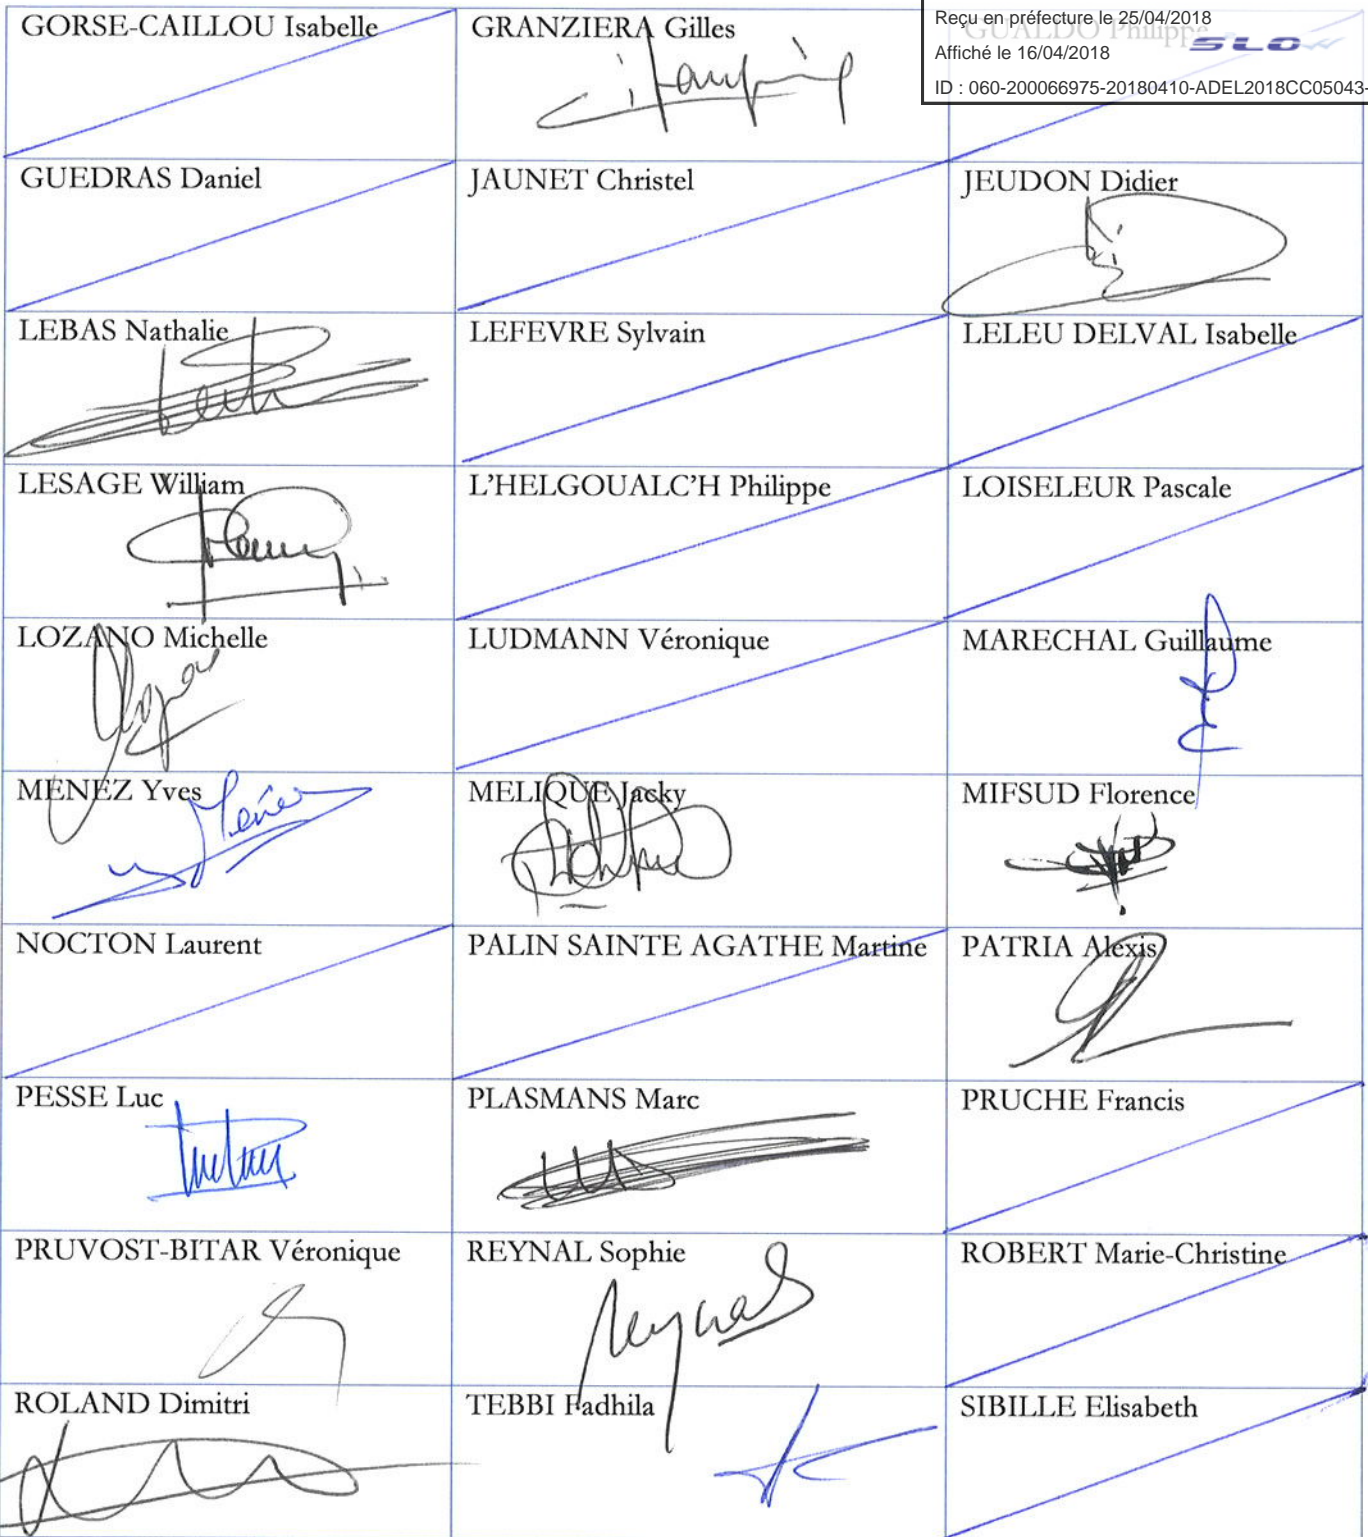 GORSE-CAILLOU Isabelle
GRANZIERA Gilles
GUALDO Philippe
Reçu en préfecture le 25/04/2018
Affiché le 16/04/2018
SLOW
ID : 060-200066975-20180410-ADEL2018CC05043-
GUEDRAS Daniel
JAUNET Christel
JEUDON Didier
LEBAS Nathalie
LEFEVRE Sylvain
LELEU DELVAL Isabelle
LESAGE William
L'HELGOUALC'H Philippe
LOISELEUR Pascale
LOZANO Michelle
LUDMANN Véronique
MARECHAL Guillaume
MENEZ Yves
MELIQUE Jacky
MIFSUD Florence
NOCTON Laurent
PALIN SAINTE AGATHE Martine
PATRIA Alexis
PESSE Luc
PLASMANS Marc
PRUCHE Francis
PRUVOST-BITAR Véronique
REYNAL Sophie
Reynal
ROBERT Marie-Christine
ROLAND Dimitri
TEBBI Fadhila
SIBILLE Elisabeth